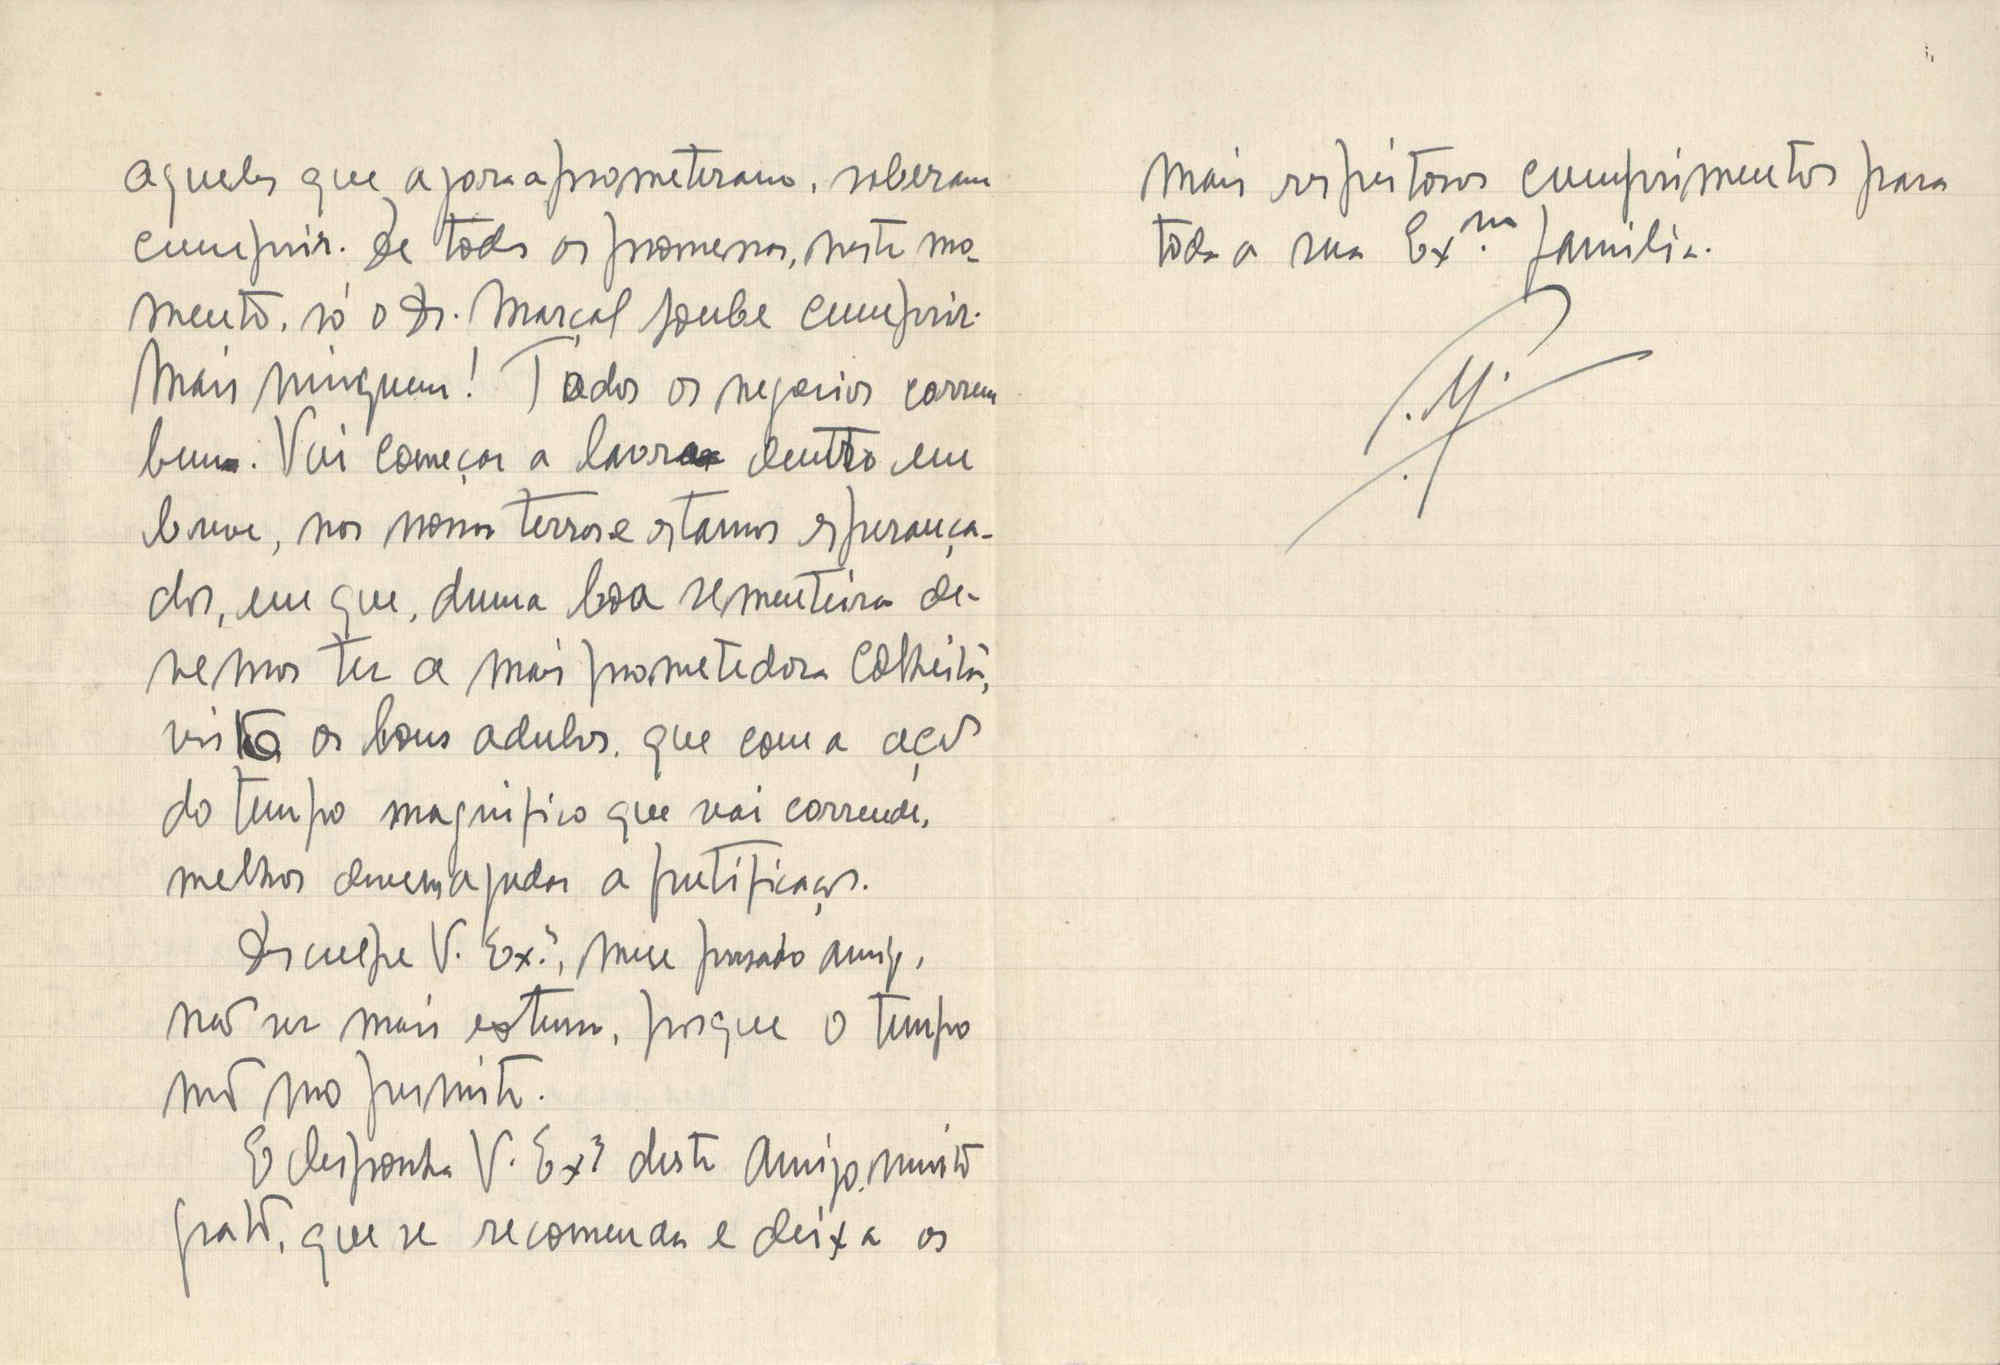 aqueles que agora a prometeram, saberam
cumprir. De todas as promessas, neste mo-
mento, só o Dr. Marçal soube cumprir.
Mais ninguem! Todos os negocios correm
bem. Vai começar a lavra dentro em
breve, nas nossas terras e estamos esperança-
dos, em que, duma boa sementeira de-
vemos ter a mais prometedora colheita,
visto os bons adubos, que com a ação
do tempo magnifico que vai correndo,
melhor devem ajudar a frutificação.
Desculpe V. Exª, meu presado amigo,
não ser mais extenso, porque o tempo
não mo permite.
E disponha V. Exª deste amigo, muito
grato, que se recomenda e deixa os
mais respeitosos cumprimentos para
toda a sua Exma familia.